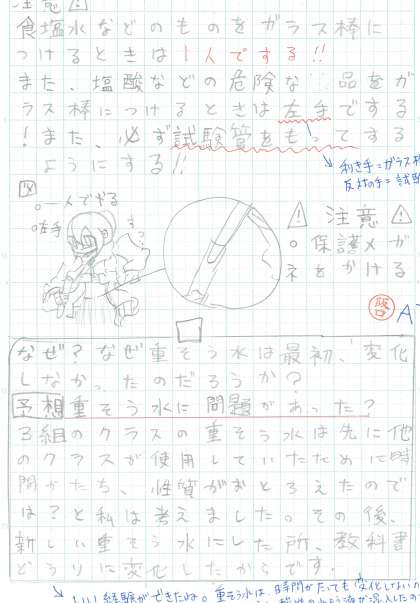 注意
食塩水などのものをガラス棒に
つけるときは1人でする!!
また、塩酸などの危険な 品をガ
ラス棒につけるときは左手でする
!また、必ず試験管をもってする
ようにする!!
利き手=ガラス棒
反対の手=試験
図
一人でやる
左手
注意
保護メガ
ネをかける
なぜ?なぜ重そう水は最初、変化
しなかったのだろうか?
予想 重そう水に問題があった?
3組のクラスの重そう水は先に他
のクラスが使用していたために時
間がたち、性質がおとろえたので
は?と私は考えました。その後、
新しい重そう水にした所、教科書
どうりに変化したからです。
いい経験ができたね。重そう水は、時間がたっても変化しない